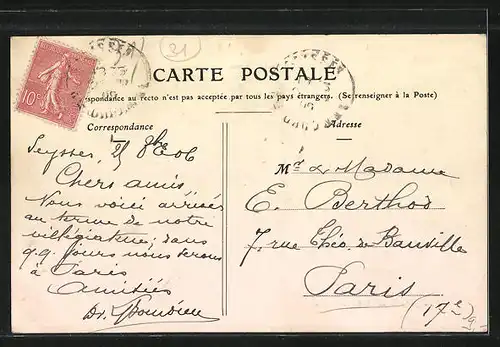 (31)
10c
SEYSSEL
CARTE POSTALE
La Correspondance au recto n'est pas acceptée par tous les pays étrangers. (Se renseigner à la Poste)
Correspondance
Seyssel, 25 8bre 06
Chers amis,
Nous voici arrivés
au terme de notre
villégiature; dans
q.q. jours nous serons
à Paris
Amitiés
Dr.
Adresse
Mr & Madame
E. Berthod
7, rue Théo. de Banville
Paris
(17e)